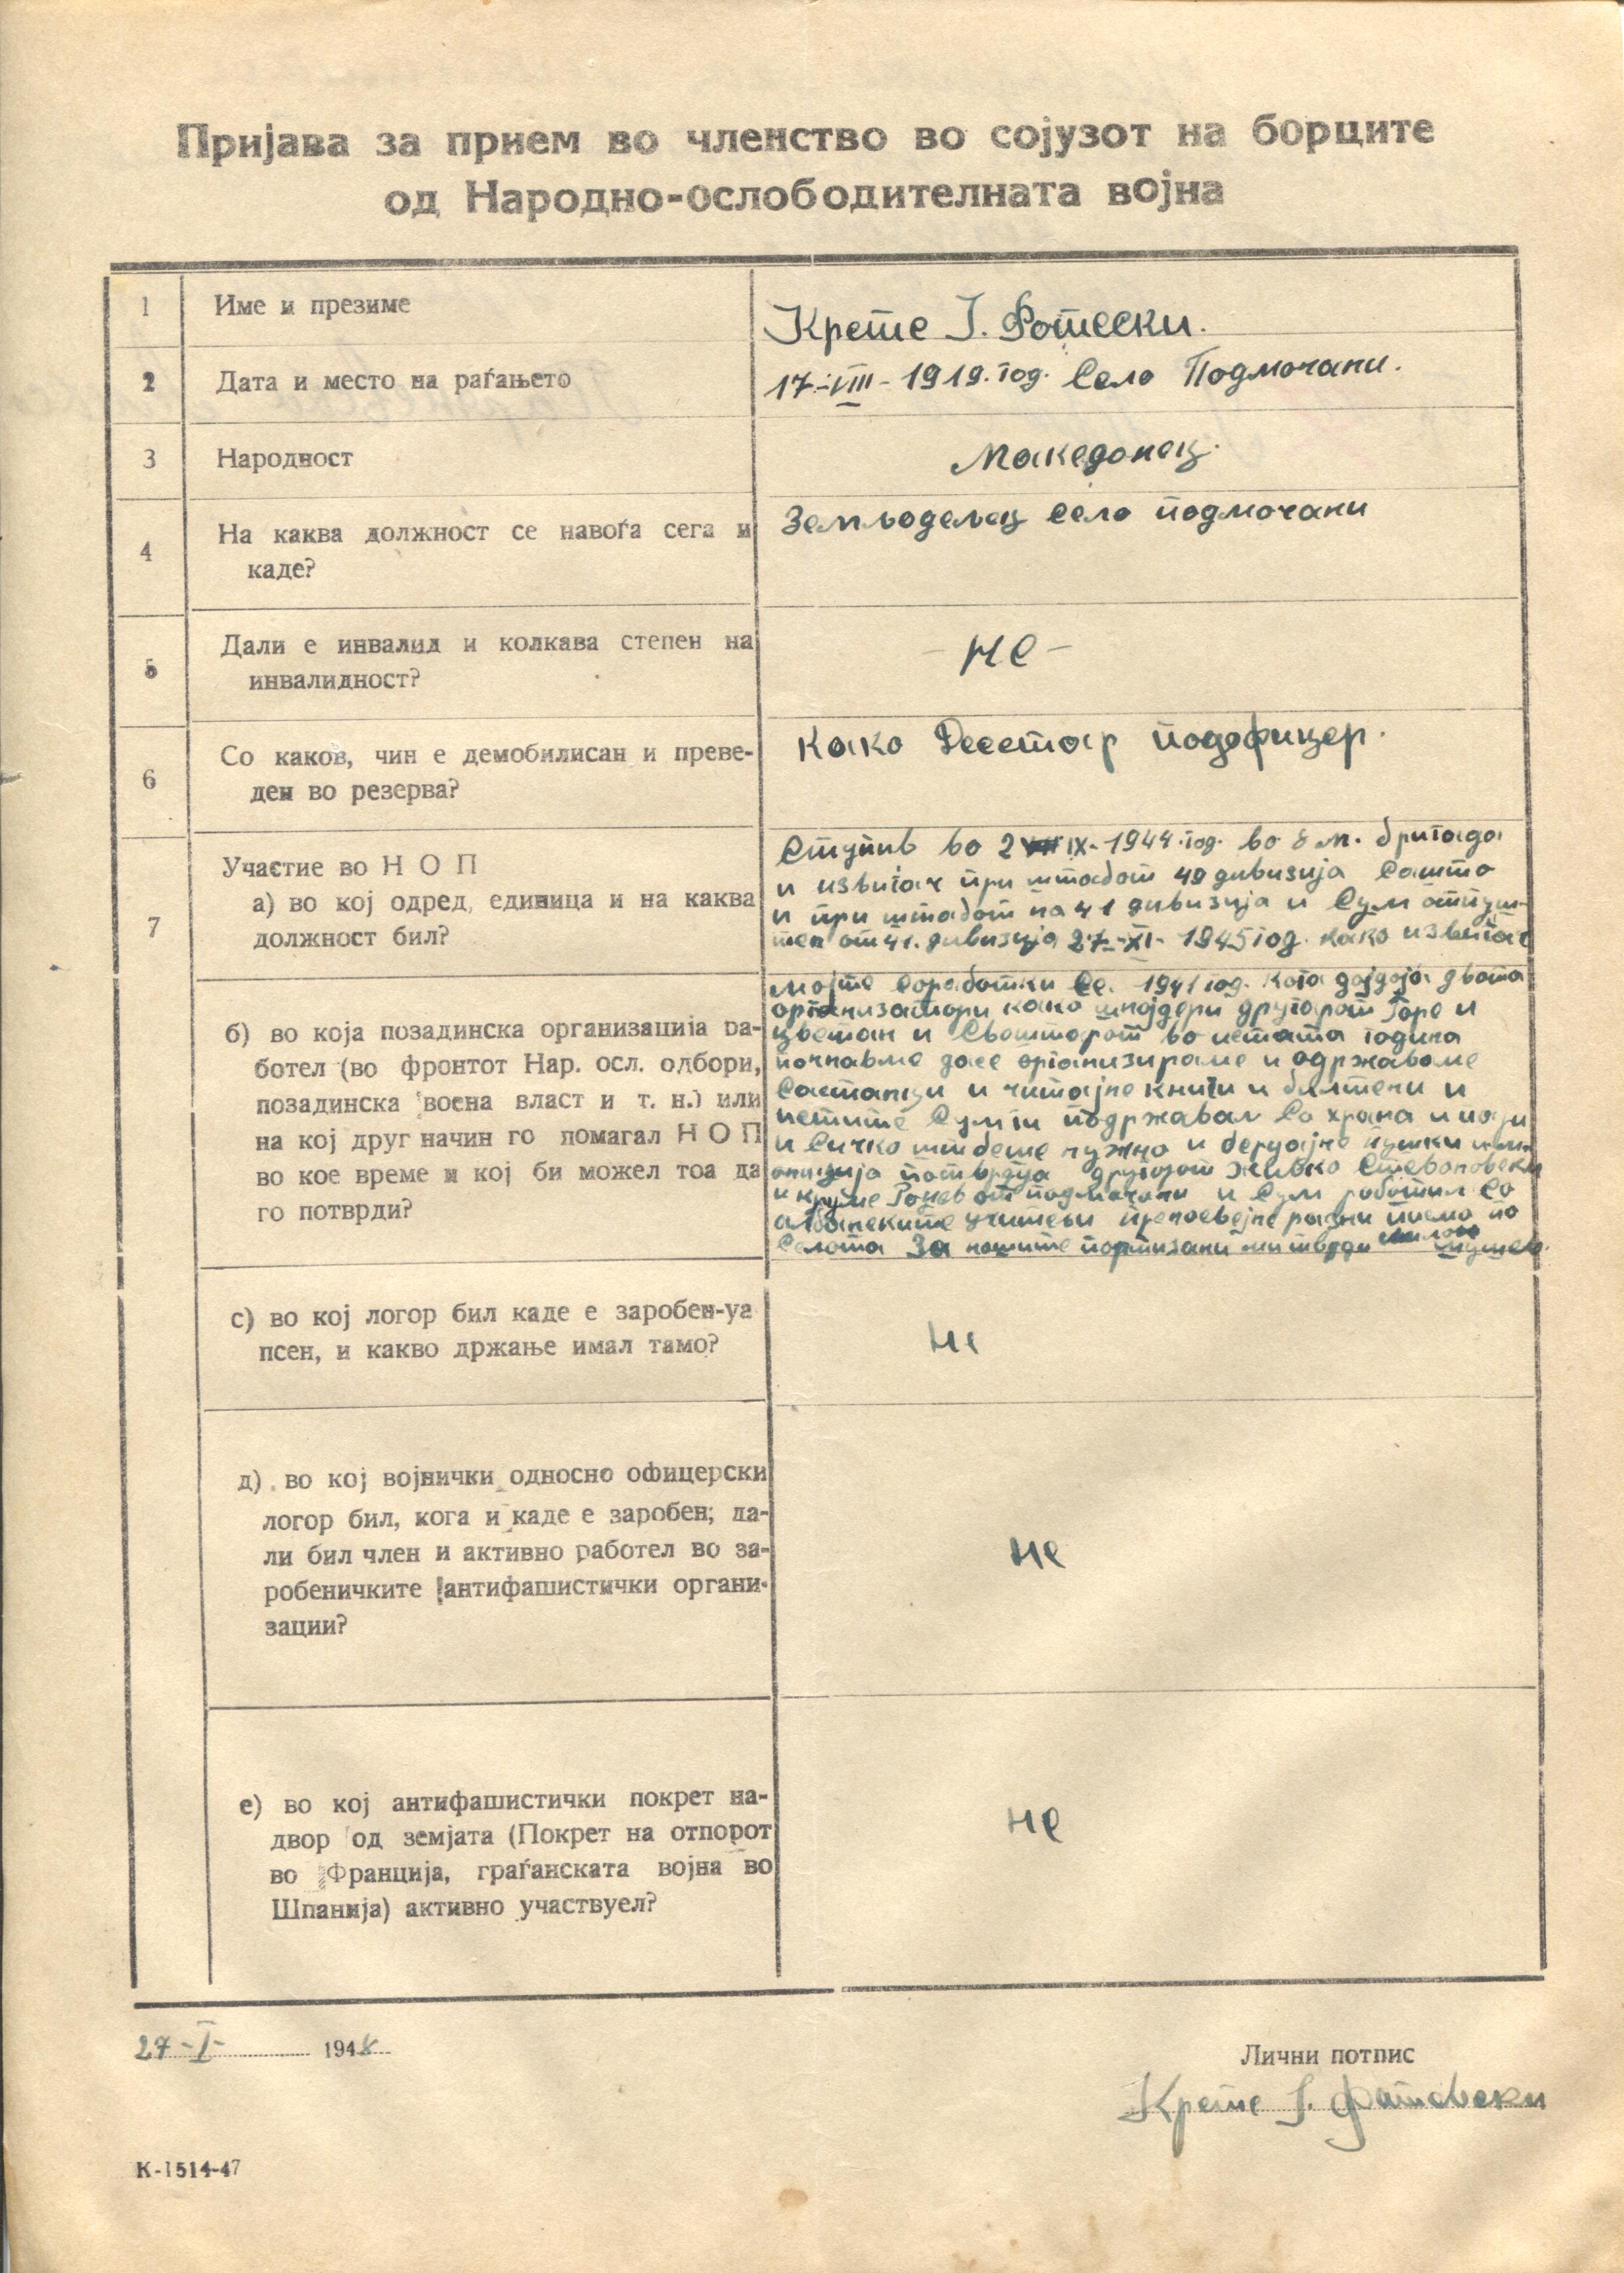 Пријава за прием во членство во сојузот на борците
од Народно-ослободителната војна
1 Име и презиме
Крсте Ј. Фотески.
2 Дата и место на раѓањето
17-VIII-1919.год. Село Подмочани.
3 Народност
Македонец.
4 На каква должност се навоѓа сега и
каде?
Земљоделец село подмочани
5 Дали е инвалид и колкава степен на
инвалидност?
- не -
6 Со каков, чин е демобилисан и преве-
ден во резерва?
Како Десетар подофицер.
7 Участие во Н О П
а) во кој одред, единица и на каква
должност бил?
Ступив во 2 IX-1944.год. во 8 м. бригада
и извиѓач при штабот 49 дивизија Сашто
и при штабот на 41 дивизија и Сум отпуш-
тен от 41. дивизија 27-XI-1945 год. како извиѓач
б) во која позадинска организација ра-
ботел (во фронтот Нар. осл. одбори,
позадинска воена власт и т. н.) или
на кој друг начин го помагал Н О П
во кое време и кој би можел тоа да
го потврди?
мојте Соработки Се. 1941 год. Кога дојдоја двата
организатори како шнајдери другарот Ѓоре и
цветан и во истата година
почнавме да се организираме и одржаваме
Састанци и читајне книги и билтени и
истите Сум ги подржавал Со храна и
и Сичко што беше нужно и пушки и му-
ниција потврдуа другарот Живко Стевановски
и от подмочани и Сум работил Со
албанските учители разни писма по
Селата За нашите партизани ми тврди
с) во кој логор бил каде е заробен-уа
псен, и какво држање имал тамо?
не
д) во кој војнички односно офицерски
логор бил, кога и каде е заробен; да-
ли бил член и активно работел во за-
робеничките антифашистички органи-
зации?
не
е) во кој антифашистички покрет на-
двор од земјата (Покрет на отпорот
во Франција, граѓанската војна во
Шпанија) активно участвуел?
не
27-I- 1948
Лични потпис
Крсте Ј. Фотевски
К-1514-47